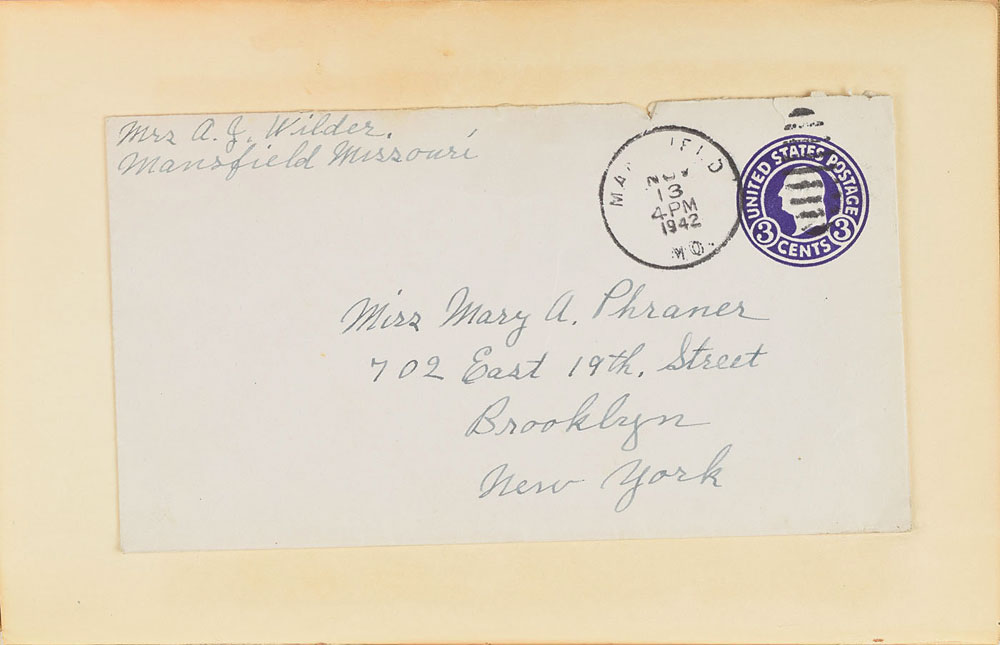 Mrs A. J. Wilder.
Mansfield Missouri
NOV
13
4 PM
1942
MO.
UNITED STATES POSTAGE
3 CENTS 3
Miss Mary A. Phraner
702 East 19th. Street
Brooklyn
New York